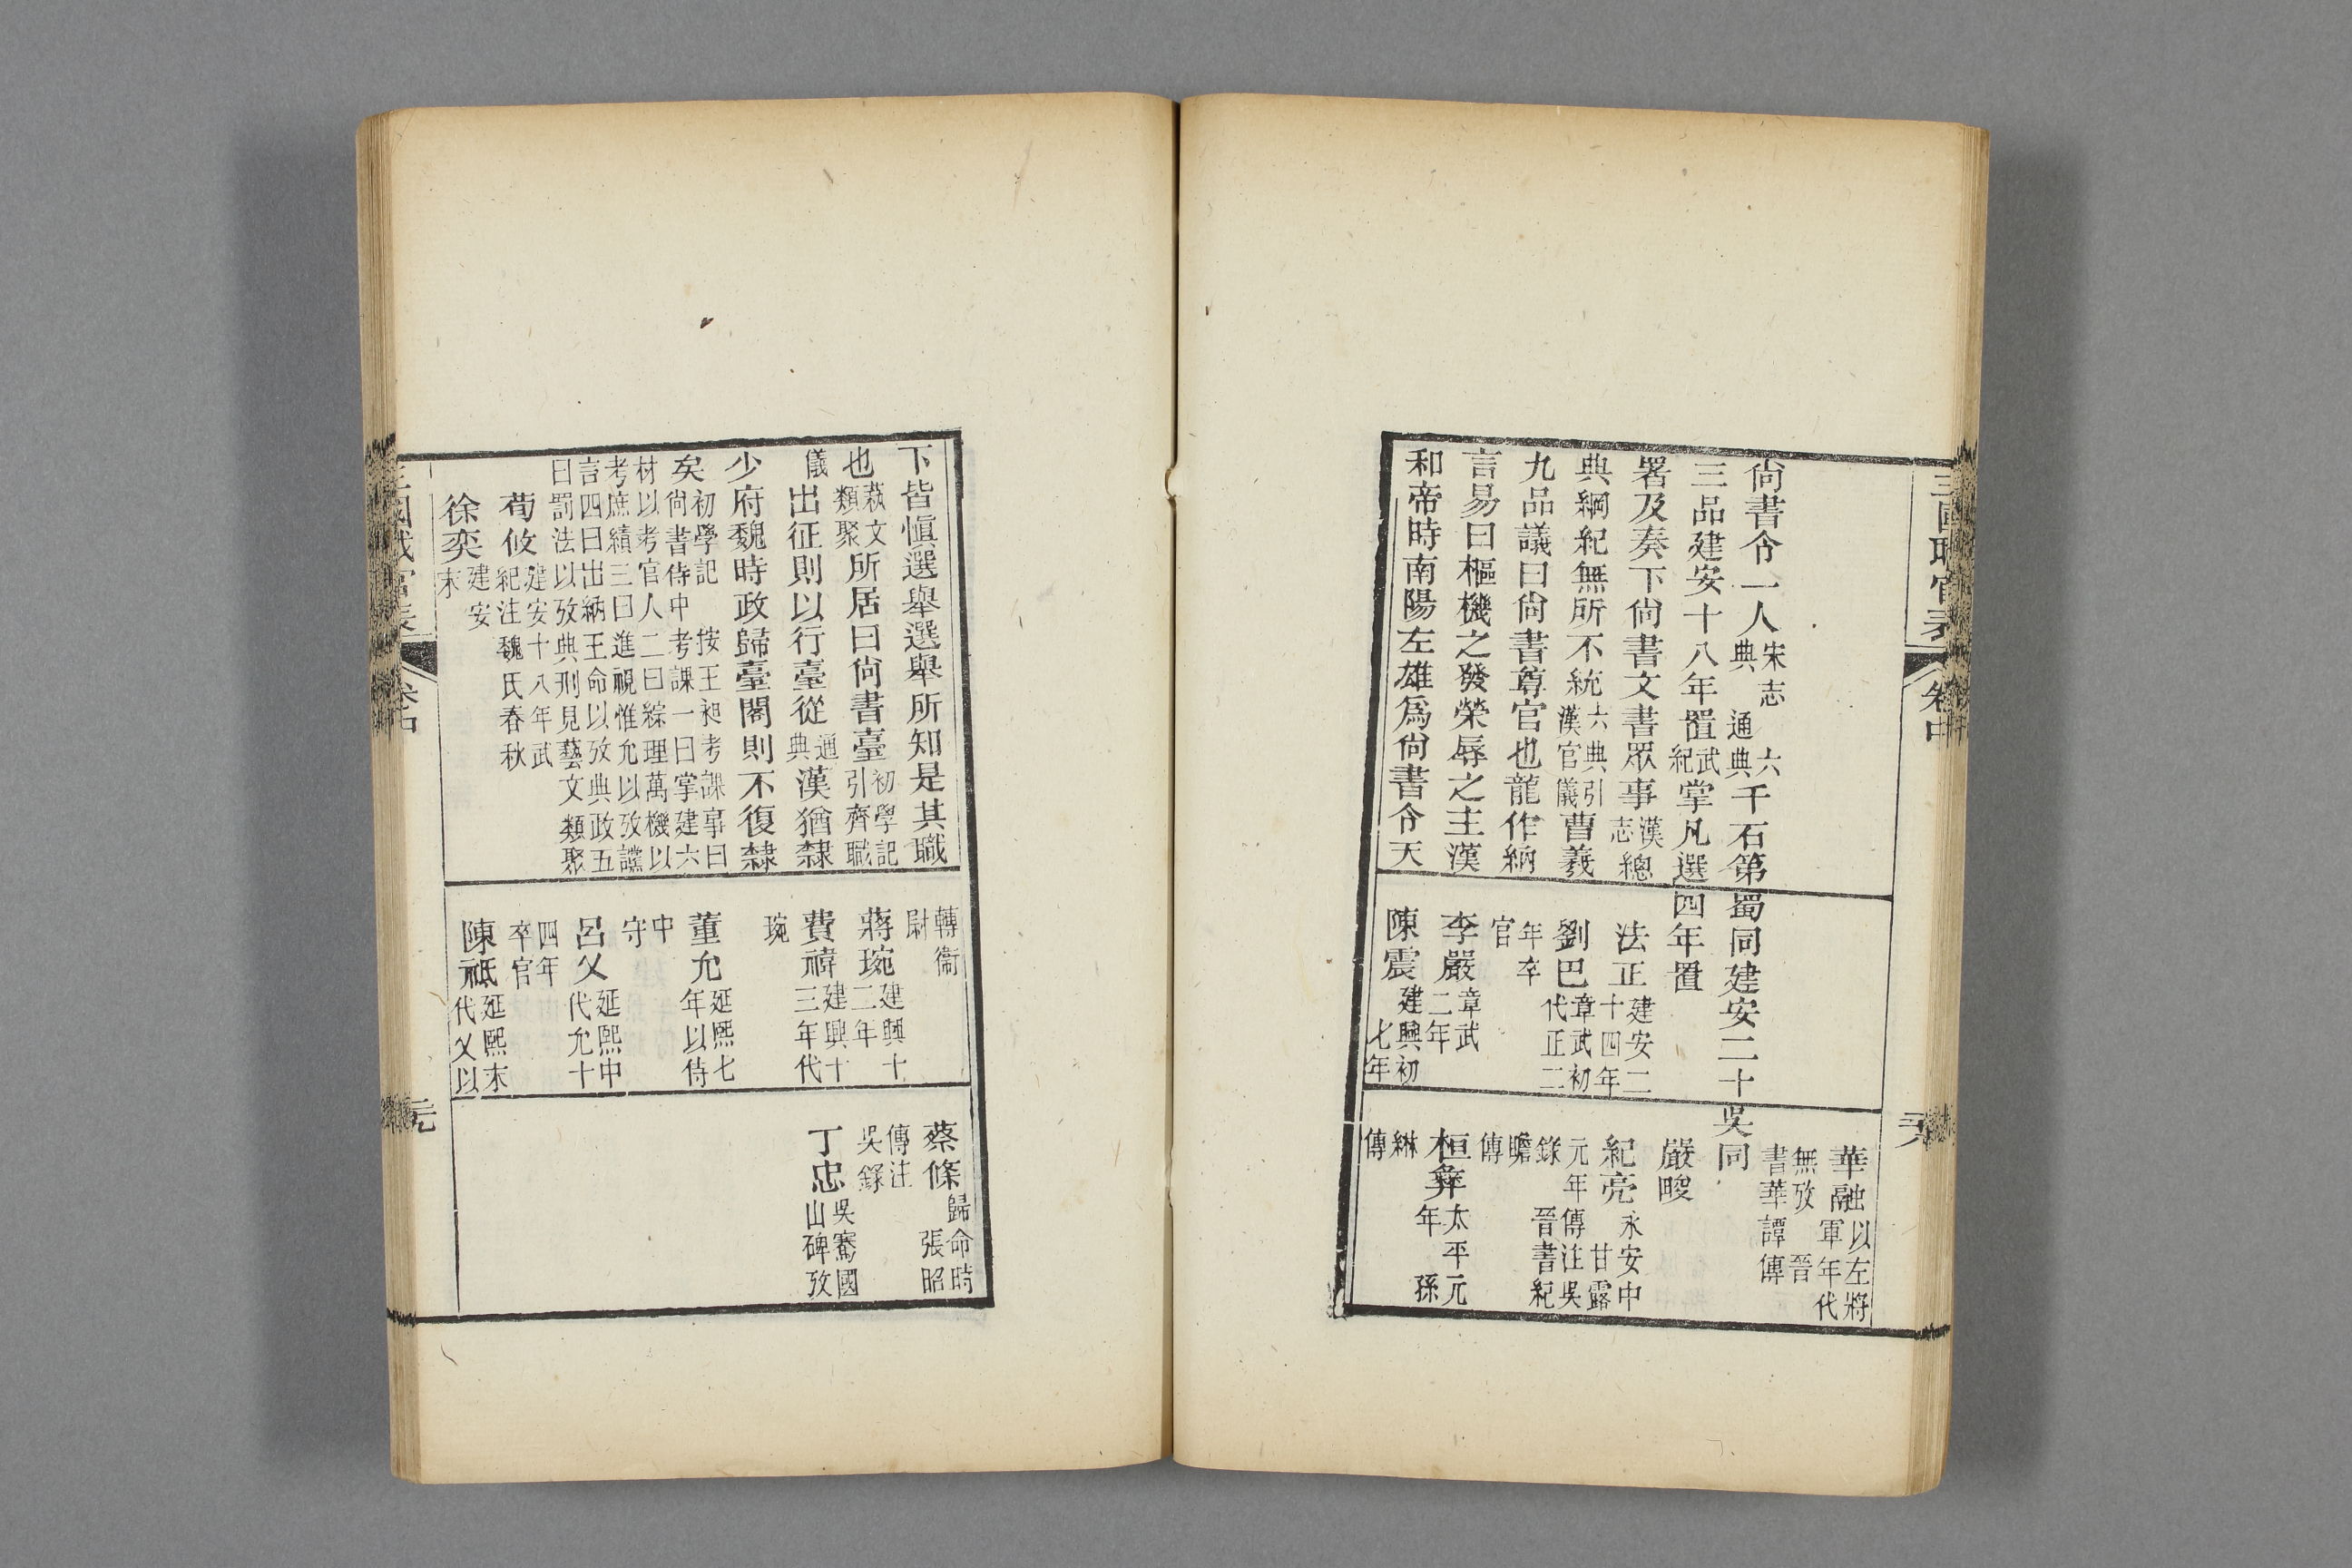 三國職官表 卷中
尙書令一人宋志 六典 通典千石第
三品建安十八年置武紀掌凡選
署及奏下尙書文書眾事漢志總
典綱紀無所不統六典引漢官儀曹羲
九品議曰尙書尊官也龍作納
言易曰樞機之發榮辱之主漢
和帝時南陽左雄爲尙書令天
蜀同建安二十
四年置
法正建安二十四年
劉巴章武初代正二
年卒官
李嚴章武二年
陳震建興初七年
華融以左將軍年代
無攷 晉書華譚傳
吳同
嚴畯
紀亮永安中 甘露
元年傳注吳錄 晉書紀
瞻傳
桓彝太平元年 孫
綝傳
下皆愼選舉選舉所知是其職
也萟文類聚所居曰尙書臺初學記引齊職
儀出征則以行臺從通典漢猶隸
少府魏時政歸臺閣則不復隸
矣初學記 按王昶考課事曰尙書侍中考課一曰掌建六
材以考官人二曰綜理萬機以考庶績三曰進視惟允以攷讜
言四曰出納王命以攷典政五曰罰法以攷典刑見藝文類聚
荀攸建安十八年武紀注魏氏春秋
徐奕建安末
轉衞尉
蔣琬建興十二年
費禕建興十三年代
琬
董允延熙七年以侍
中守
呂乂延熙中代允十
四年卒官
陳祗延熙末代乂以
蔡條歸命時 張昭
傳注吳錄
丁忠吳騫國山碑攷
卷中